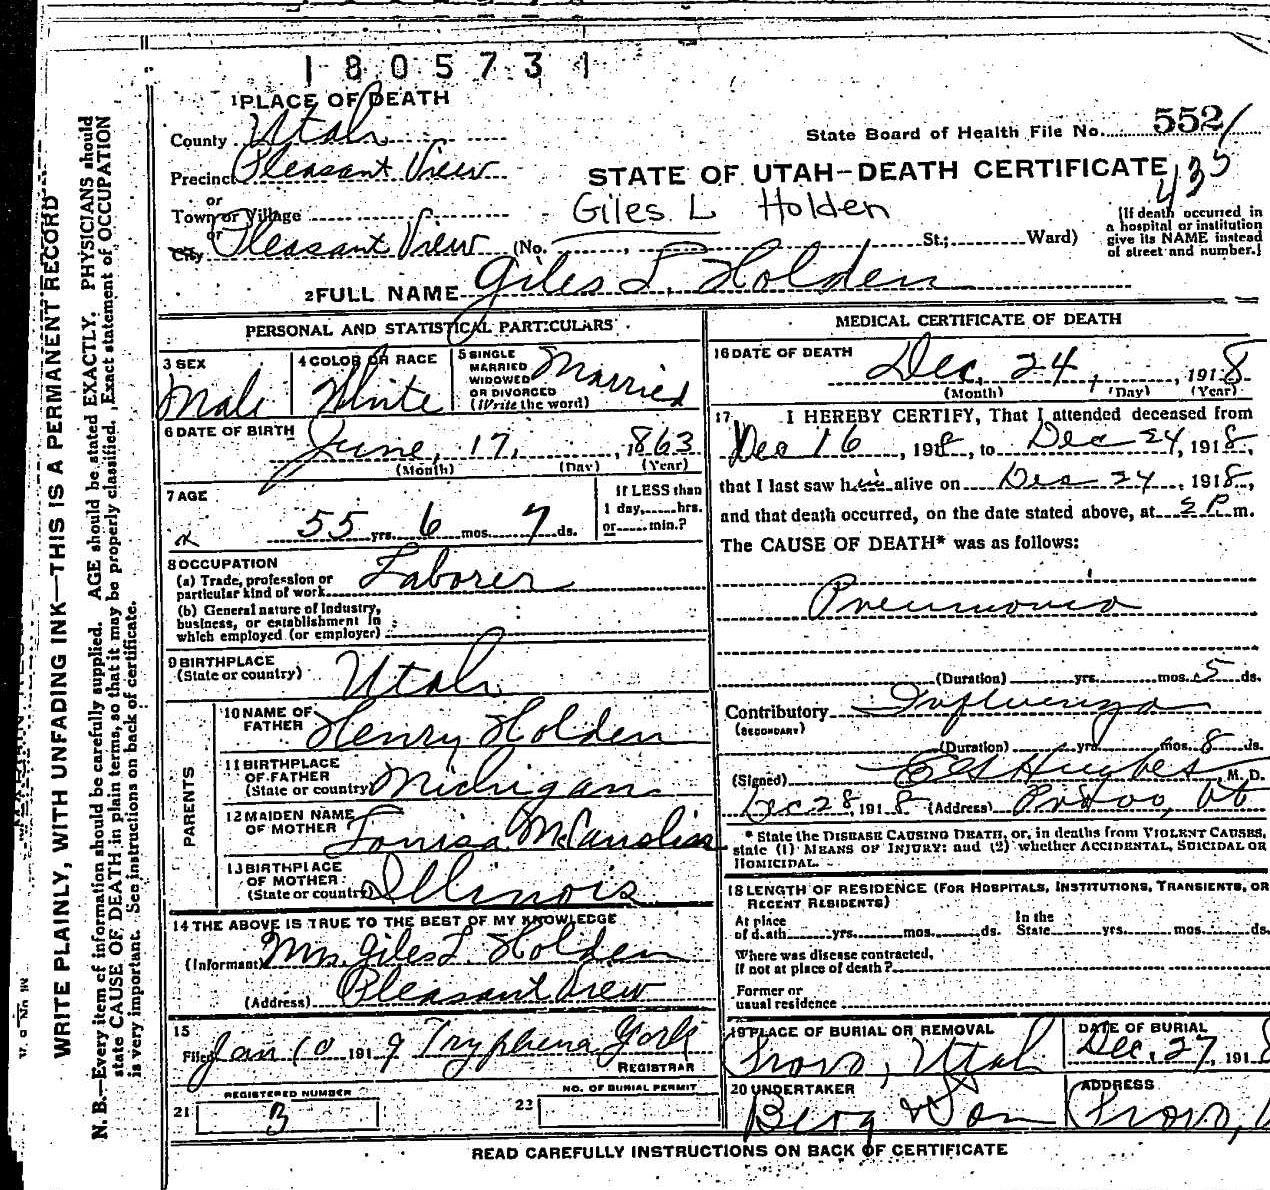 1805731
1 PLACE OF DEATH
County Utah
State Board of Health File No. 552
435
Precinct Pleasant View
STATE OF UTAH—DEATH CERTIFICATE
or
Town or Village
Giles L Holden
or
City Pleasant View (No. , St.; Ward)
(If death occurred in
a hospital or institution
give its NAME instead
of street and number.)
2 FULL NAME Giles L. Holden
PERSONAL AND STATISTICAL PARTICULARS
3 SEX
Male
4 COLOR OR RACE
White
5 SINGLE
MARRIED
WIDOWED
OR DIVORCED
(Write the word)
Married
6 DATE OF BIRTH
June, 17, 1863
(Month) (Day) (Year)
7 AGE
55 yrs. 6 mos. 7 ds.
If LESS than
1 day, hrs.
or min.?
8 OCCUPATION
(a) Trade, profession or
particular kind of work Laborer
(b) General nature of Industry,
business, or establishment in
which employed (or employer)
9 BIRTHPLACE
(State or country) Utah
PARENTS
10 NAME OF
FATHER Henry Holden
11 BIRTHPLACE
OF FATHER
(State or country) Michigan
12 MAIDEN NAME
OF MOTHER Louisa
13 BIRTHPLACE
OF MOTHER
(State or country) Illinois
14 THE ABOVE IS TRUE TO THE BEST OF MY KNOWLEDGE
(Informant) Mrs. Giles L. Holden
(Address) Pleasant View
15
Filed Jan 10 1919 Tryphena York
REGISTRAR
REGISTERED NUMBER
21 3
NO. OF BURIAL PERMIT
22
MEDICAL CERTIFICATE OF DEATH
16 DATE OF DEATH
Dec. 24, , 1918
(Month) (Day) (Year)
17 I HEREBY CERTIFY, That I attended deceased from
Dec 16, 1918, to Dec 24, 1918,
that I last saw him alive on Dec 24, 1918,
and that death occurred, on the date stated above, at P m.
The CAUSE OF DEATH* was as follows:
Pneumonia
(Duration) yrs. mos. 5 ds.
Contributory Influenza
(SECONDARY)
(Duration) yrs. mos. 8 ds.
(Signed) Hughes, M. D.
Dec 28, 1918 (Address) Provo, Ut
* State the DISEASE CAUSING DEATH, or, in deaths from VIOLENT CAUSES,
state (1) MEANS OF INJURY; and (2) whether ACCIDENTAL, SUICIDAL OR
HOMICIDAL.
18 LENGTH OF RESIDENCE (FOR HOSPITALS, INSTITUTIONS, TRANSIENTS, OR
RECENT RESIDENTS)
At place
of death yrs. mos. ds.
In the
State yrs. mos. ds.
Where was disease contracted,
If not at place of death?
Former or
usual residence
19 PLACE OF BURIAL OR REMOVAL
Provo, Utah
DATE OF BURIAL
Dec. 27, 1918
20 UNDERTAKER
Berg & Son
ADDRESS
Provo,
READ CAREFULLY INSTRUCTIONS ON BACK OF CERTIFICATE
WRITE PLAINLY, WITH UNFADING INK—THIS IS A PERMANENT RECORD
N. B.—Every item of information should be carefully supplied. AGE should be stated EXACTLY. PHYSICIANS should
state CAUSE OF DEATH in plain terms, so that it may be properly classified. Exact statement of OCCUPATION
is very important. See instructions on back of certificate.